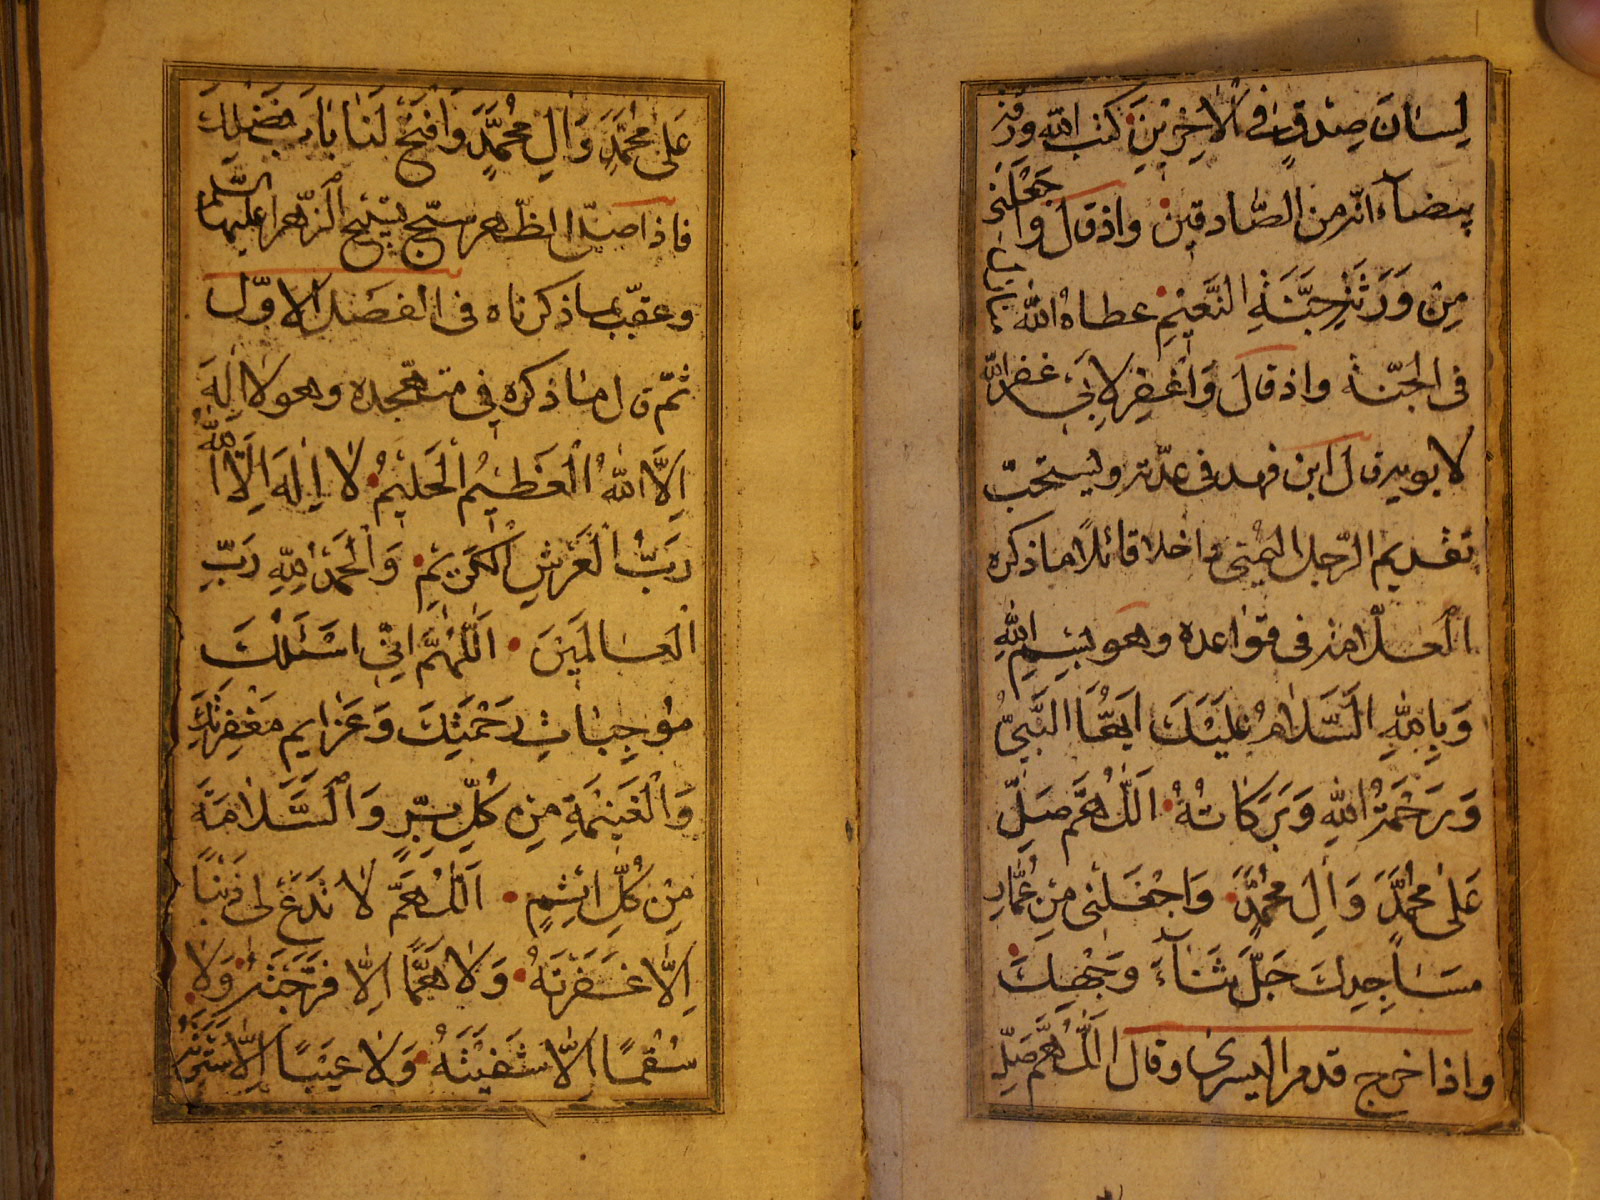 لِسَانَ صِدْقٍ فِي الْاٰخِرِينَ كتب الله
بيضاء انّه من الصّادقين واذ قال وَاجْعَلْنِي
مِنْ وَرَثَةِ جَنَّةِ النَّعِيْمِ عطاه الله
فى الجنّة واذ قال وَاغْفِرْ لِاَبِي غفر الله
لابويه قال ابن فهد فى عدّته ويستحبّ
تقديم الرّجل اليمنى داخلا قائلًا ما ذكره
العلّامة فى قواعده وهو بِسْمِ اللهِ
وَبِاللهِ اَلسَّلَامُ عَلَيْكَ اَيُّهَا النَّبِيُّ
وَرَحْمَةُ اللهِ وَبَرَكَاتُهُ اَللّٰهُمَّ صَلِّ
عَلٰى مُحَمَّدٍ وَاٰلِ مُحَمَّدٍ وَاجْعَلْنِي مِنْ عُمَّارِ
مَسَاجِدِكَ جَلَّ ثَنَاۤءُ وَجْهِكَ
واذا اخرج قدمه اليسرى وقال اَللّٰهُمَّ صَلِّ
عَلٰى مُحَمَّدٍ وَاٰلِ مُحَمَّدٍ وَافْتَحْ لَنَا بَابَ فَضْلِكَ
فاذا صلّى الظّهر سبّح تسبيح الزّهرا عليها السّلم
وعقّب بما ذكرناه فى الفصل الاوّل
ثمّ قال ما ذكره فى متهجّده وهو لَا اِلٰهَ
اِلَّا اللهُ الْعَظِيْمُ الْحَلِيْمُ لَا اِلٰهَ اِلَّا اللهُ
رَبُّ الْعَرْشِ الْكَرِيْمِ وَالْحَمْدُ لِلّٰهِ رَبِّ
الْعَالَمِيْنَ اَللّٰهُمَّ اِنِّي اَسْئَلُكَ
مُوْجِبَاتِ رَحْمَتِكَ وَعَزَايِمِ مَغْفِرَتِكَ
وَالْغَنِيْمَةِ مِنْ كُلِّ بِرٍّ وَالسَّلَامَةَ
مِنْ كُلِّ اِثْمٍ اَللّٰهُمَّ لَا تَدَعْ لِي ذَنْبًا
اِلَّا غَفَرْتَهُ وَلَا هَمًّا اِلَّا فَرَّجْتَهُ وَلَا
سُقْمًا اِلَّا شَفَيْتَهُ وَلَا عَيْبًا اِلَّا سَتَرْتَهُ